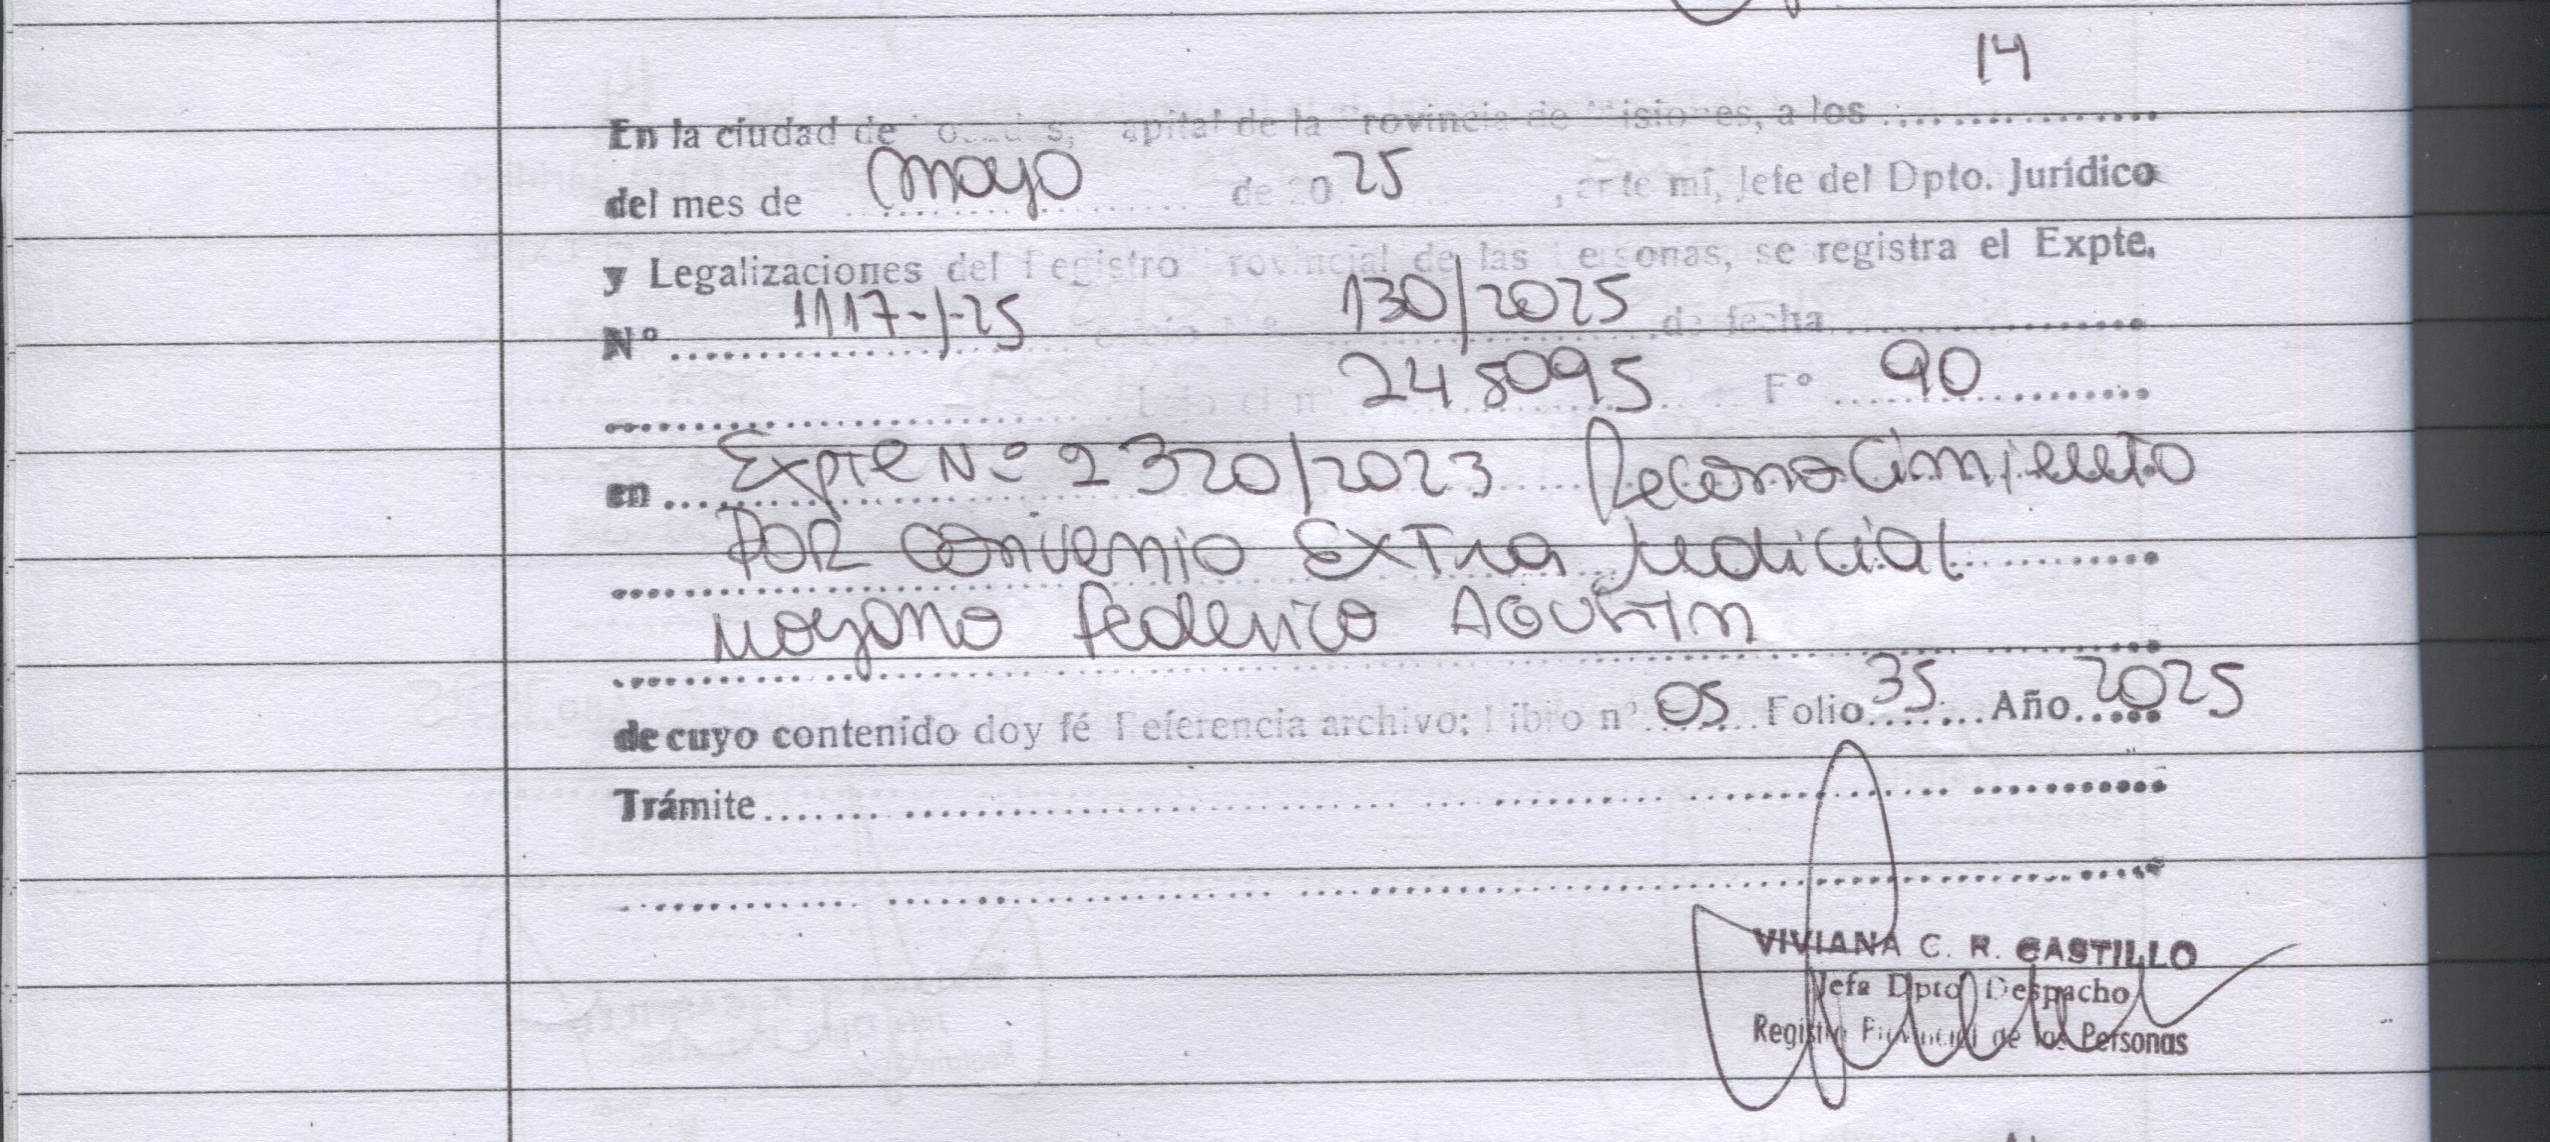 14
En la ciudad de Posadas, Capital de la Provincia de Misiones, a los ................
del mes de mayo de 2025, ante mí, Jefe del Dpto. Jurídico
y Legalizaciones del Registro Provincial de las Personas, se registra el Expte.
Nº 1117-J-25 Oficio Nº 130/2025 de fecha ................
bajo el nº 248095 Fº 90
en Expte Nº 2320/2023 Reconocimiento
POR convenio Extra judicial
Moyano Federico AGUSTIN
de cuyo contenido doy fé Referencia archivo: Libro nº 05 Folio 35 Año 2025
Trámite
VIVIANA C. R. CASTILLO
Jefa Dpto Despacho
Registro Provincial de las Personas